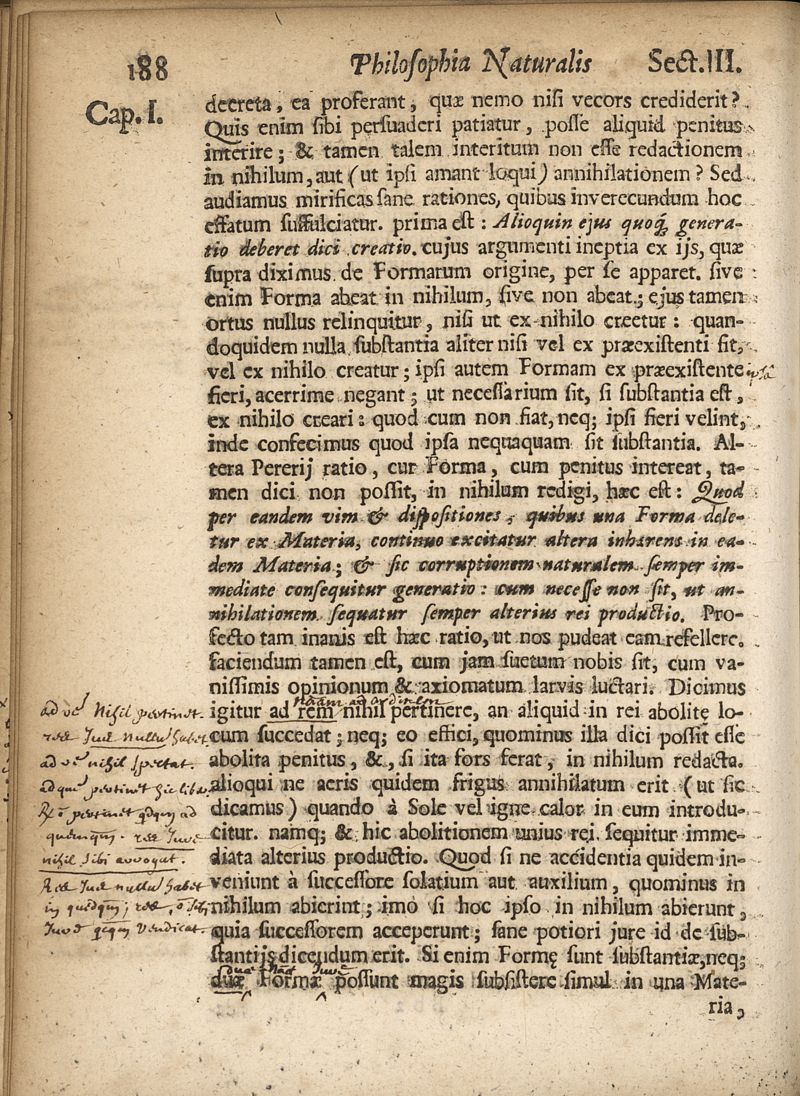 188 Philosophia Naturalis Sect.III.
Cap. I.
decreta, ea proferant, quæ nemo nisi vecors crediderit?
Quis enim sibi persuaderi patiatur, posse aliquid penitus
interire; & tamen talem interitum non esse redactionem
in nihilum, aut (ut ipsi amant loqui) annihilationem? Sed
audiamus mirificas sane rationes, quibus inverecundum hoc
effatum suffulciatur. prima est: Alioquin ejus quoq; genera-
tio deberet dici creatio. cujus argumenti ineptia ex ijs, quæ
supra diximus de Formarum origine, per se apparet. sive
enim Forma abeat in nihilum, sive non abeat; ejus tamen
ortus nullus relinquitur, nisi ut ex nihilo creetur: quan-
doquidem nulla substantia aliter nisi vel ex præexistenti fit,
vel ex nihilo creatur; ipsi autem Formam ex præexistente
fieri, acerrime negant; ut necessarium sit, si substantia est,
ex nihilo creari: quod cum non fiat, neq; ipsi fieri velint,
inde confecimus quod ipsa nequaquam sit substantia. Al-
tera Pererij ratio, cur Forma, cum penitus intereat, ta-
men dici non possit, in nihilum redigi, hæc est: Quod
per eandem vim & dispositiones, quibus una Forma dele-
tur ex Materia, continuo excitatur altera inhærens in ea-
dem Materia; & sic corruptionem naturalem semper im-
mediate consequitur generatio: cum necesse non sit, ut an-
nihilationem sequatur semper alterius rei productio. Pro-
fecto tam inanis est hæc ratio, ut nos pudeat eam refellere.
faciendum tamen est, cum jam suetum nobis sit, cum va-
nissimis opinionum & axiomatum larvis luctari. Dicimus
igitur ad rem nihil pertinere, an aliquid in rei abolitę lo-
cum succedat; neq; eo effici, quominus illa dici possit esse
abolita penitus, &, si ita fors ferat, in nihilum redacta.
alioqui ne aeris quidem frigus annihilatum erit (ut sic
dicamus) quando à Sole vel igne calor in eum introdu-
citur. namq; & hic abolitionem unius rei sequitur imme-
diata alterius productio. Quod si ne accidentia quidem in-
veniunt à successore solatium aut auxilium, quominus in
nihilum abierint; imo si hoc ipso in nihilum abierunt,
quia successorem acceperunt; sane potiori jure id de sub-
stantijs dicendum erit. Si enim Formę sunt substantiæ, neq;
duæ Formæ possunt magis subsistere simul in una Mate-
ria,